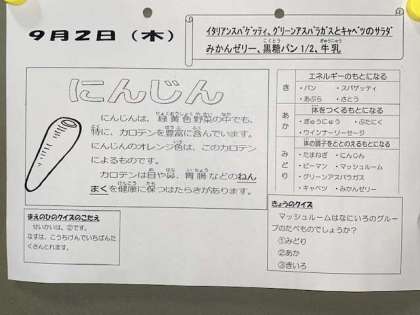 9月2日(木)
イタリアンスパゲッティ、グリーンアスパラガスとキャベツのサラダ
みかんゼリー、黒糖パン 1/2、牛乳
にんじん
にんじんは、緑黄色野菜の中でも、
特に、カロテンを豊富に含んでいます。
にんじんのオレンジ色は、このカロテン
によるものです。
カロテンは目や鼻、胃腸などのねん
まくを健康に保つはたらきがあります。
エネルギーのもとになる
き
・パン ・スパゲッティ
・あぶら ・さとう
体をつくるもとになる
あか
・ぎゅうにゅう ・ぶたにく
・ウインナーソーセージ
体の調子をととのえるもとになる
みどり
・たまねぎ ・にんじん
・ピーマン ・マッシュルーム
・グリーンアスパラガス
・キャベツ ・みかんゼリー
まえのひのクイズのこたえ
せいかいは、②です。
なすは、こうちけんでいちばんた
くさんとれます。
きょうのクイズ
マッシュルームはなにいろのグルー
プのたべものでしょうか?
①みどり
②あか
③きいろ